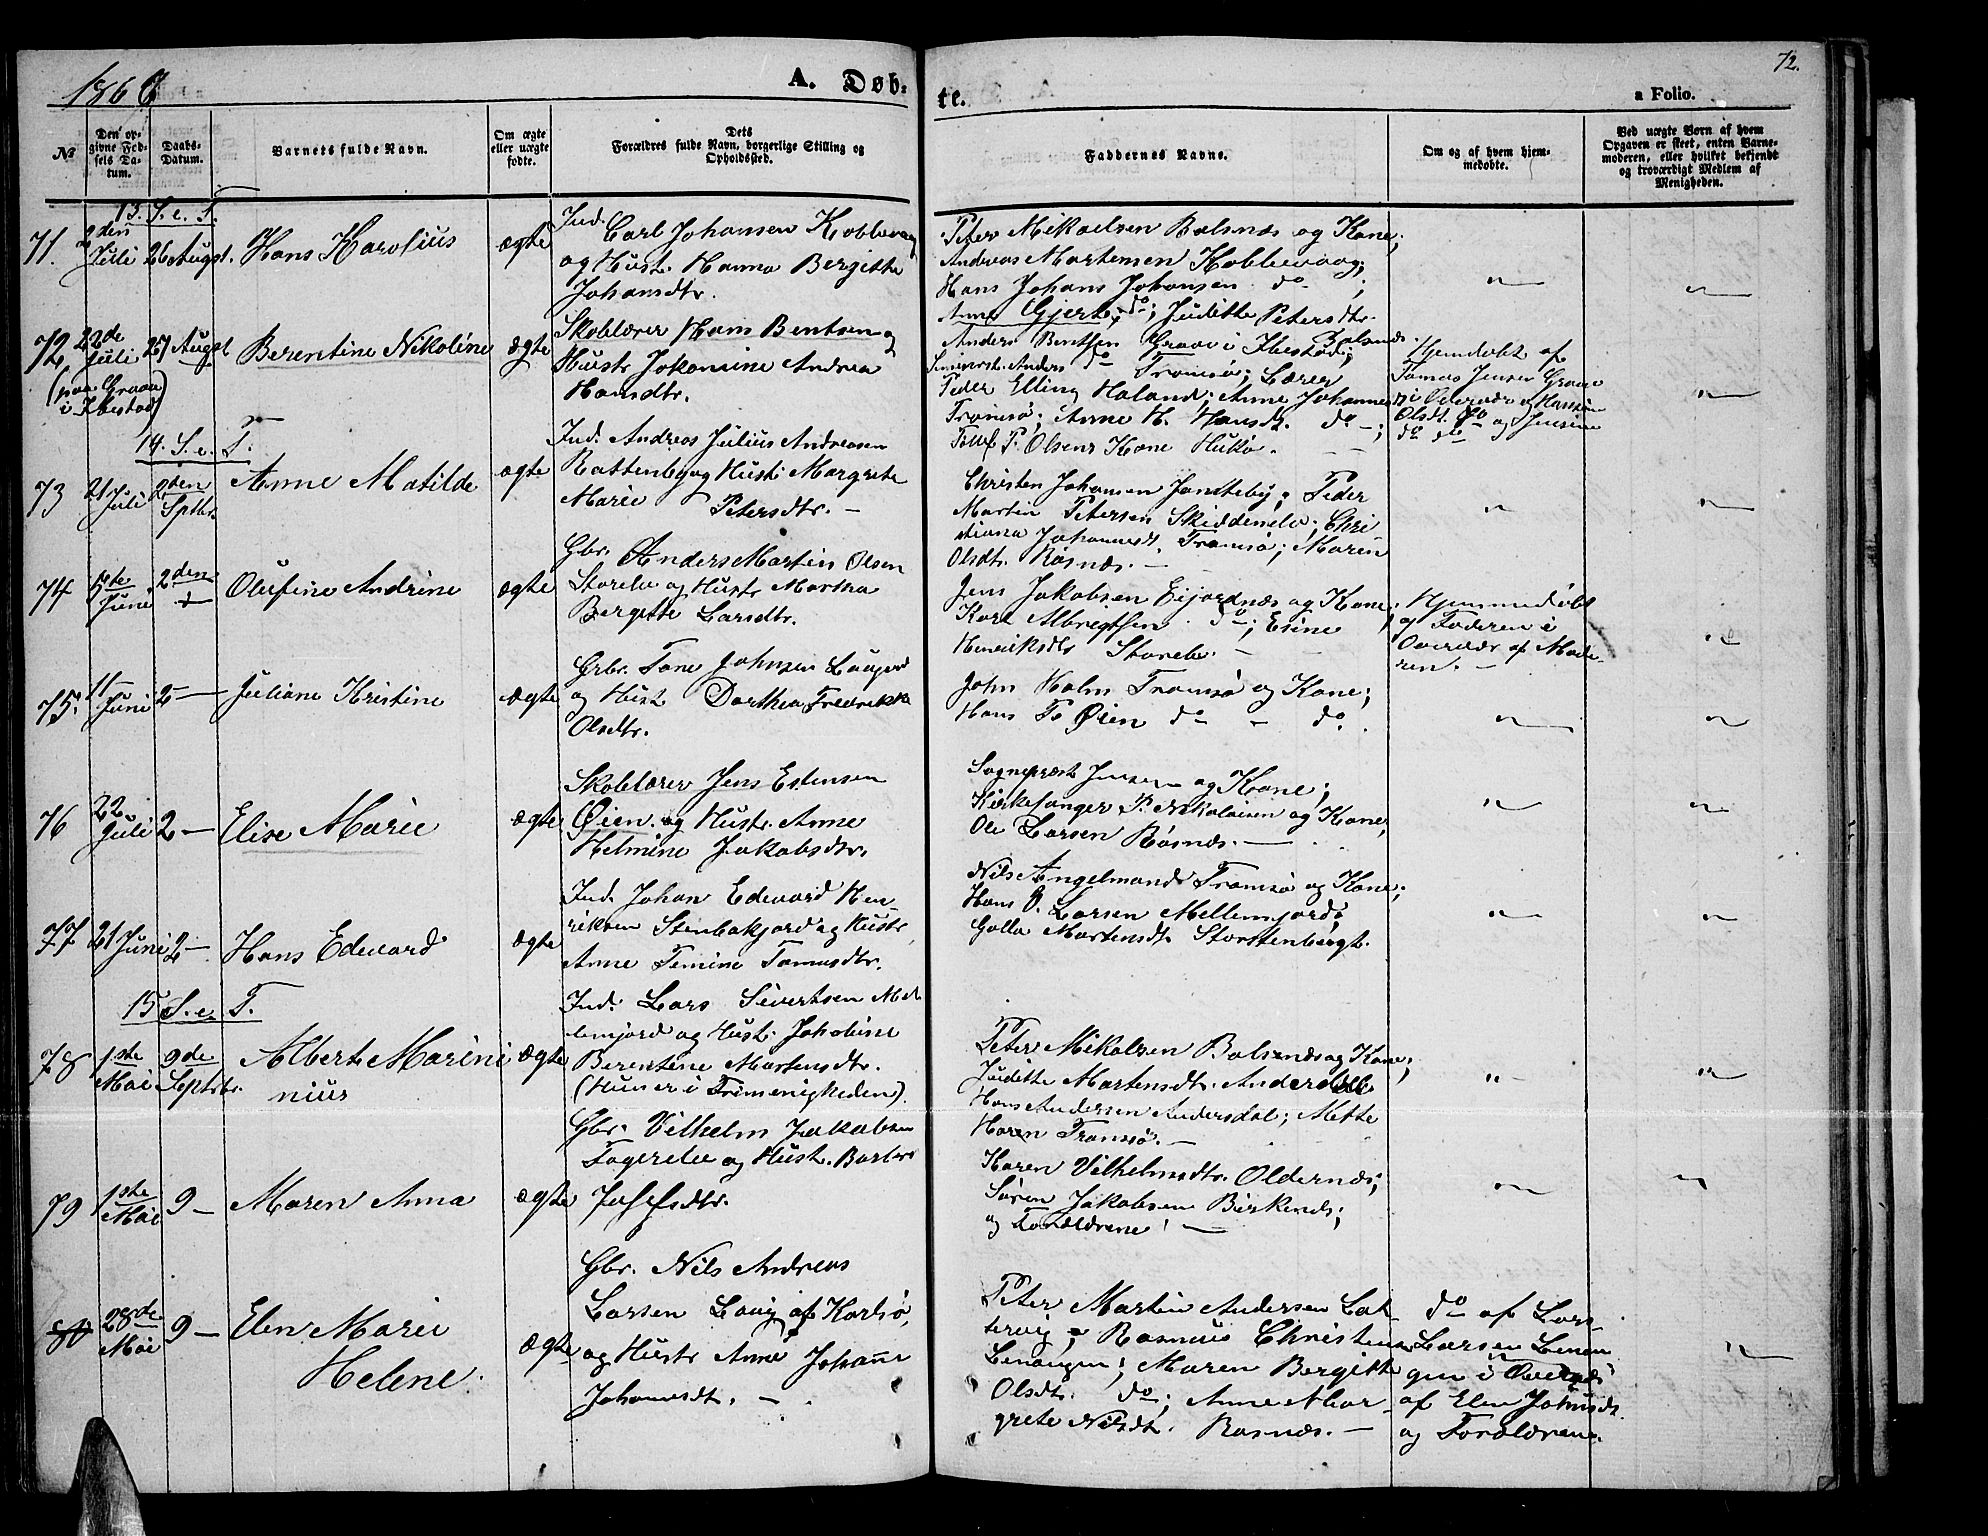 1866
A. Døb-
te.
72.
a Folio.
№
Den opgivne Fødsels Datum.
Daabs-Datum.
Barnets fulde Navn.
Om ægte eller uægte fødte.
Dets Forældres fulde Navn, borgerlige Stilling og Opholdssted.
Faddernes Navne.
Om og af hvem hjemmedøbte.
Ved uægte Børn af hvem Opgaven er skeet, enten Barnemoderen, eller hvilket bekjendt og troværdigt Medlem af Menigheden.
13. S. e. T.
71. 2den Juli 26 Augst. Hans Karolius ægte
Ind. Carl Johansen Koblevaag
og Hust. Hanna Bergitte
Johansdtr.
Peter Mikaelsen Balsnæs og Kone;
Andreas Mortensen Koblevaag;
Hans Johans Johansen do ;
Anne Gjert, do; Judithe Petersdtr.
Balsnæs.
72 22de Juli 27 Augst Berentine Nikoline ægte
(paa Graae
i Ibestad)
Skolelærer Hans Bentsen og
Hustr Jakomine Andrea
Hansdtr.
Anders Bentsen Graae i Ibestad;
Seminrst. Anders do Tromsø; Lærer
Peder Elling Haland; Anne Johannesdt
Tromsø; Anne H. Hansdt. do - ;
P. Olsens Kone
Hjemdøbt af
Tomas Jensen Graae
i Overvær af
Olsdt. do og Jensine
do do
14. S. e. T.
73 21 Juli 2den Sptbr. Anne Matilde ægte
Ind. Andreas Julius Andreasen
Rattenby og Hust. Margrete
Marie Petersdtr. -
Christen Johansen Jansteby; Peder
Martin Petersen Skiddenelv; Chri
stiana Johannesdt. Tromsø; Maren
Olsdt. Røsnæs. -
74 5te Juni 2den Olufine Andrine ægte
Gbr. Anders Martin Olsen
Storelv og Hustr Martha
Bergitte Larsdtr.
Jens Jakobsen Eijordnæs og Kone;
Karl Albrigtsen do; Esine
Henriksdtr Storelv. -
Hjemmedøbt
af Faderen i
Overvær af Mode-
ren. -
75. 11 Juni 2 - Juliane Kristine ægte
Gbr. Tone Johnsen
og Hust Dorthea Fredrikke
Olsdtr.
John Holm Tromsø og Kone;
Hans P. Øien do - do.
76 22 Juli 2 - Elise Marie ægte
Skolelærer Jens Estensen
Øien og Hustr. Anne
Helmine Jakobsdtr.
Sognepræst Jensen og Kone;
Kirkesanger P. Nikolaisen og Kone,
Ole Larsen Røsnæs. -
77 21 Juni 2 - Hans Edevard ægte
Ind. Johan Edevard Hen-
riksen Stenbakjord og Hustr,
Anne Temine Tomasdtr.
Nils Angelmand Tromsø og Kone;
Hans O. Larsen Mellemjord;
Golla Mortensdt. Storstenbergt.
15 S. e. T.
78 1ste Mai 9de Sptbr Albert Marini
nius ægte
Ind. Lars Sivertsen Mel
lemjord og Hust. Jakobine
Berentine Mortensdtr.
(Huser i Frimenigheden).
Peter Mikalsen Balsnæs og Kone;
Judithe Mortensdt. Andersdal
Hans Andersen Andersdal; Mette
Haren Tromsø. -
79 1ste Mai 9 - Maren Anna ægte
Gbr. Vilhelm Jakobsen
Fagerelv og Hust. Barbro
Josefsdtr.
Karen Vilhelmsdtr. Oldernæs;
Søren Jakobsen Birkenæs;
og Forældrene. -
80 28de Mai 9 - Elen Marie
Helene. ægte
Gbr. Nils Andreas
Larsen Lavig af Karlsø,
og Hustr Anne Johanne
Johannesdt. -
Peter Martin Andersen Lat
tervig; Rasmus Christensen
Lenangen; Maren Bergitte
Olsdt. do; Anne Mar-
grete Nilsdt. Røsnæs. -
do af Lars
Larsen Lenan
gen i Overvær
af Elen Johnsdt.
og Forældrene.